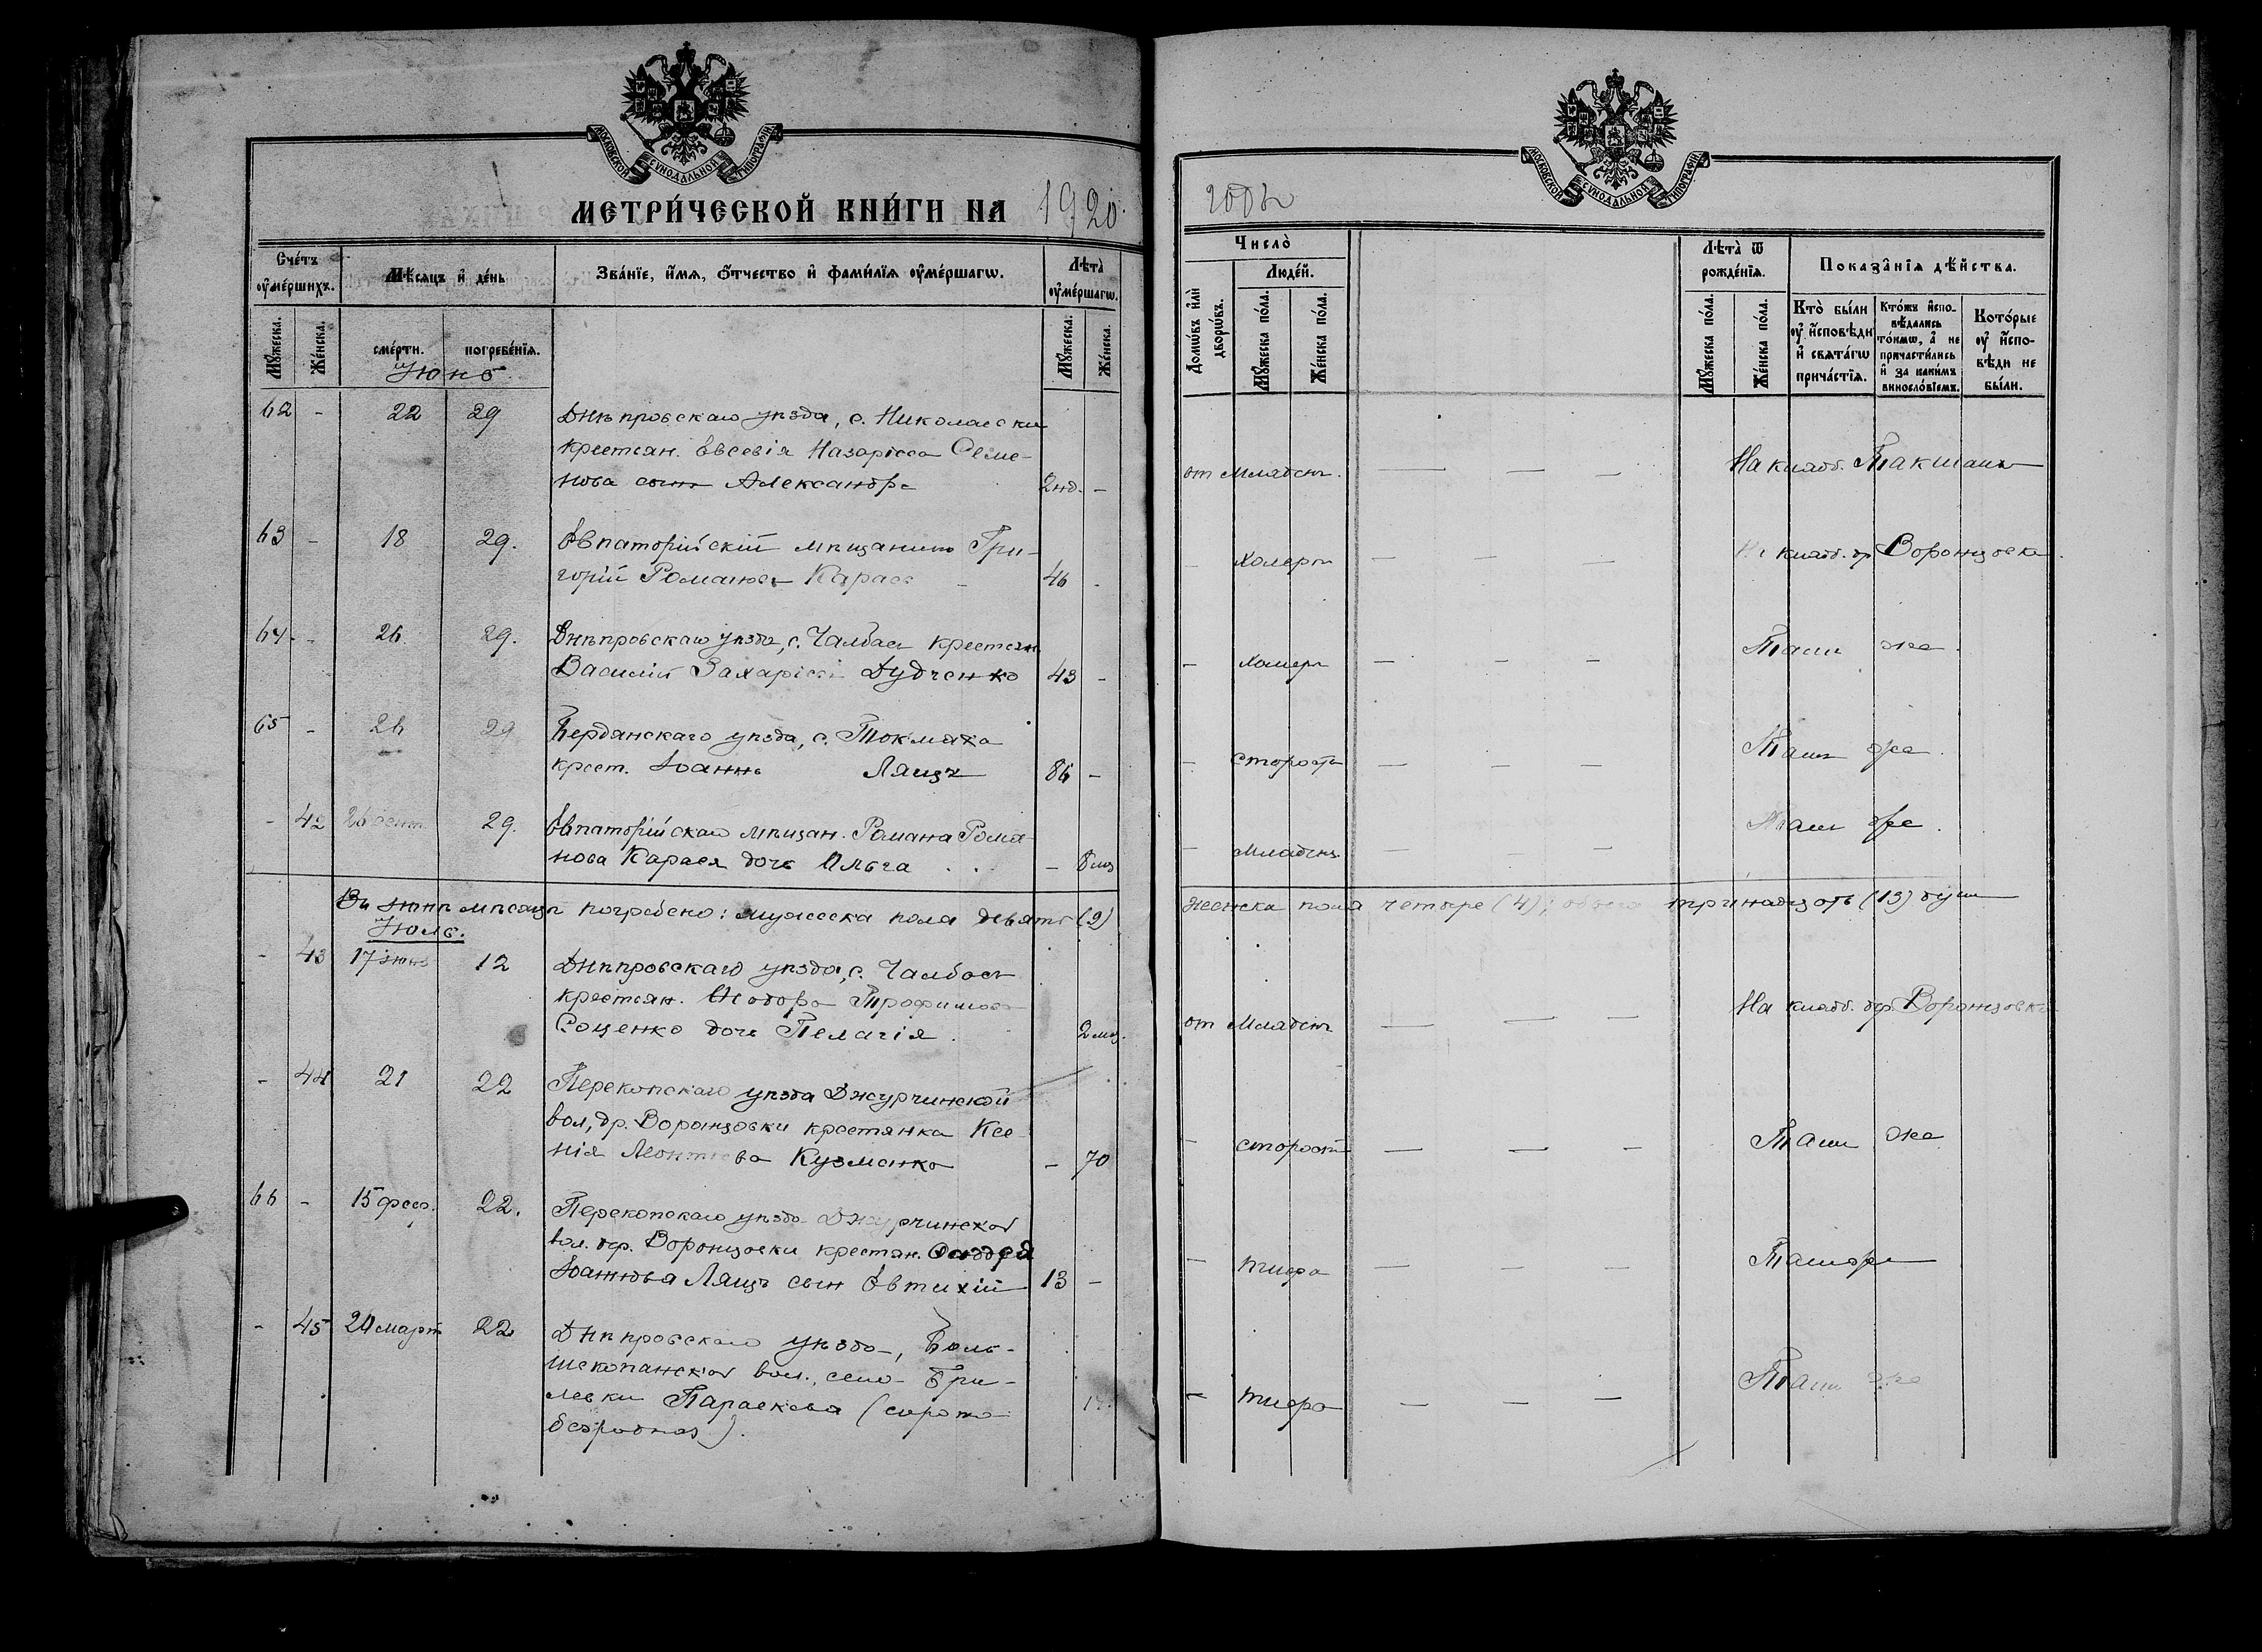 МОСКОВСКОЙ СѴНОДАЛЬНОЙ ТИПОГРАФІИ.
МЕТРИ́ЧЕСКОЙ КНИ́ГИ НА 1920.
Сче́тъ оу҆ме́ршихъ.
Мѣ́сяцъ и҆ де́нь
Зва́нїе, и҆́мѧ, ѻ҆́тчество и҆ фами́лїѧ оу҆ме́ршагѡ.
Лѣ́та оу҆ме́ршагѡ.
Мꙋ́жеска.
Же́нска.
сме́рти.
погребе́нїѧ.
Мꙋ́жеска.
Же́нска.
Июнь
62 - 22 29 Днѣпровскаго уѣзда, с. Николаевки
крестьян. Евсевія Назаріева Семе-
нова сынъ Александръ 2 нд. -
63 - 18 29. Евпаторійскій мѣщанинъ Гри-
горій Романовъ Карась - 46 -
64 - 26 29. Днѣпровскаго уѣзда, с. Чалбасъ крестьян.
Василій Захаріевъ Дудченко 43 -
65 - 26 29 Бердянскаго уѣзда, с. Токмака
крест. Іоаннъ Лящъ 86 -
- 42 26 29. Евпаторійскаго мѣщан. Романа Рома-
нова Карася дочь Ольга . . - 8 мц
Въ іюнѣ мѣсяцѣ погребено: мужеска пола девять (9)
Июль.
- 43 17 іюня 12 Днѣпровскаго уѣзда, с. Чалбасъ
крестьян. Ѳеодора Трофимова
Сощенко дочь Пелагія. 2 мц.
- 44 21 22 Перекопскаго уѣзда Джурчинской
вол, др. Воронцовки крестьянка Ксе-
нія Леонтьева Кузменко - 70
66 - 15 фев. 22. Перекопскаго уѣзда Джурчинской
вол. дер. Воронцовки крестьян.
Іоаннова Лящъ сын Евтихій 13 -
- 45 24 март 22 Днѣпровскаго уѣзда, Боль-
шекопанской вол., села Бри-
левки Параскева (сирота
безродная).
МОСКОВСКОЙ СѴНОДАЛЬНОЙ ТИПОГРАФІИ.
годъ
Число̀
Домѡ́въ и҆лѝ дворѡ́въ.
Люде́й.
Мꙋ́жеска по́ла.
Же́нска по́ла.
Лѣ́та ѿ рожде́нїѧ.
Мꙋ́жеска по́ла.
Же́нска по́ла.
Показа̑нїѧ дѣ́йства.
Кто̀ бы́ли оу҆ и҆́сповѣди и҆ свѧта́гѡ прича́стїѧ.
Кто́жъ и҆спо-вѣ́дались то́кмѡ, а҆ не причасти́лись и҆ за каки́мъ винослові́емъ.
Кото́рые оу҆ и҆́спо-вѣди не бы́ли.
от младен. — — — На кладб. Такшанъ
- холеры — — — кладб. др Воронцовка.
- холеры — — — Тамъ же.
- старость — — — Тамъ же.
- младенч. — — Тамъ же.
женска пола четыре (4); обоего тринадцать (13) душ
от младен — — — На кладб. дер. Воронцовка
- старости — — — Тамъ же
- тифа — — — Тамъ же
- тифа — — — Тамъ же